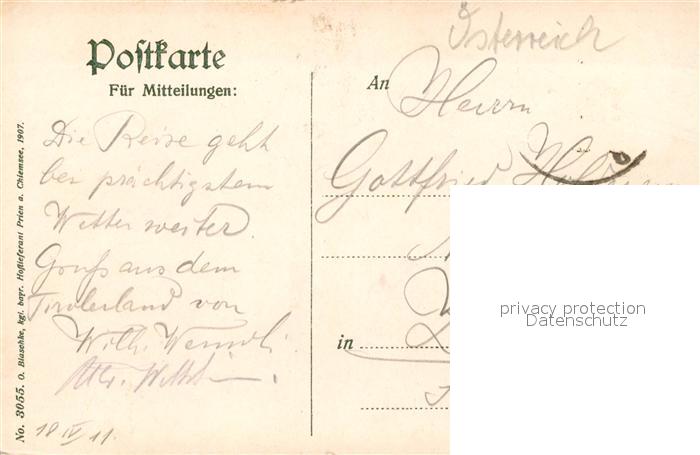 Österreich
Postkarte
Für Mitteilungen:
Die Reise geht
bei prächtigstem
Wetter weiter.
Gruß aus dem
Tirolerland von
Wilh.
18 IV 11.
An
Herrn
Gottfried
in
No. 3055. O. Blaschke, kgl. bayr. Hoflieferant Prien a. Chiemsee, 1907.
privacy protection
Datenschutz